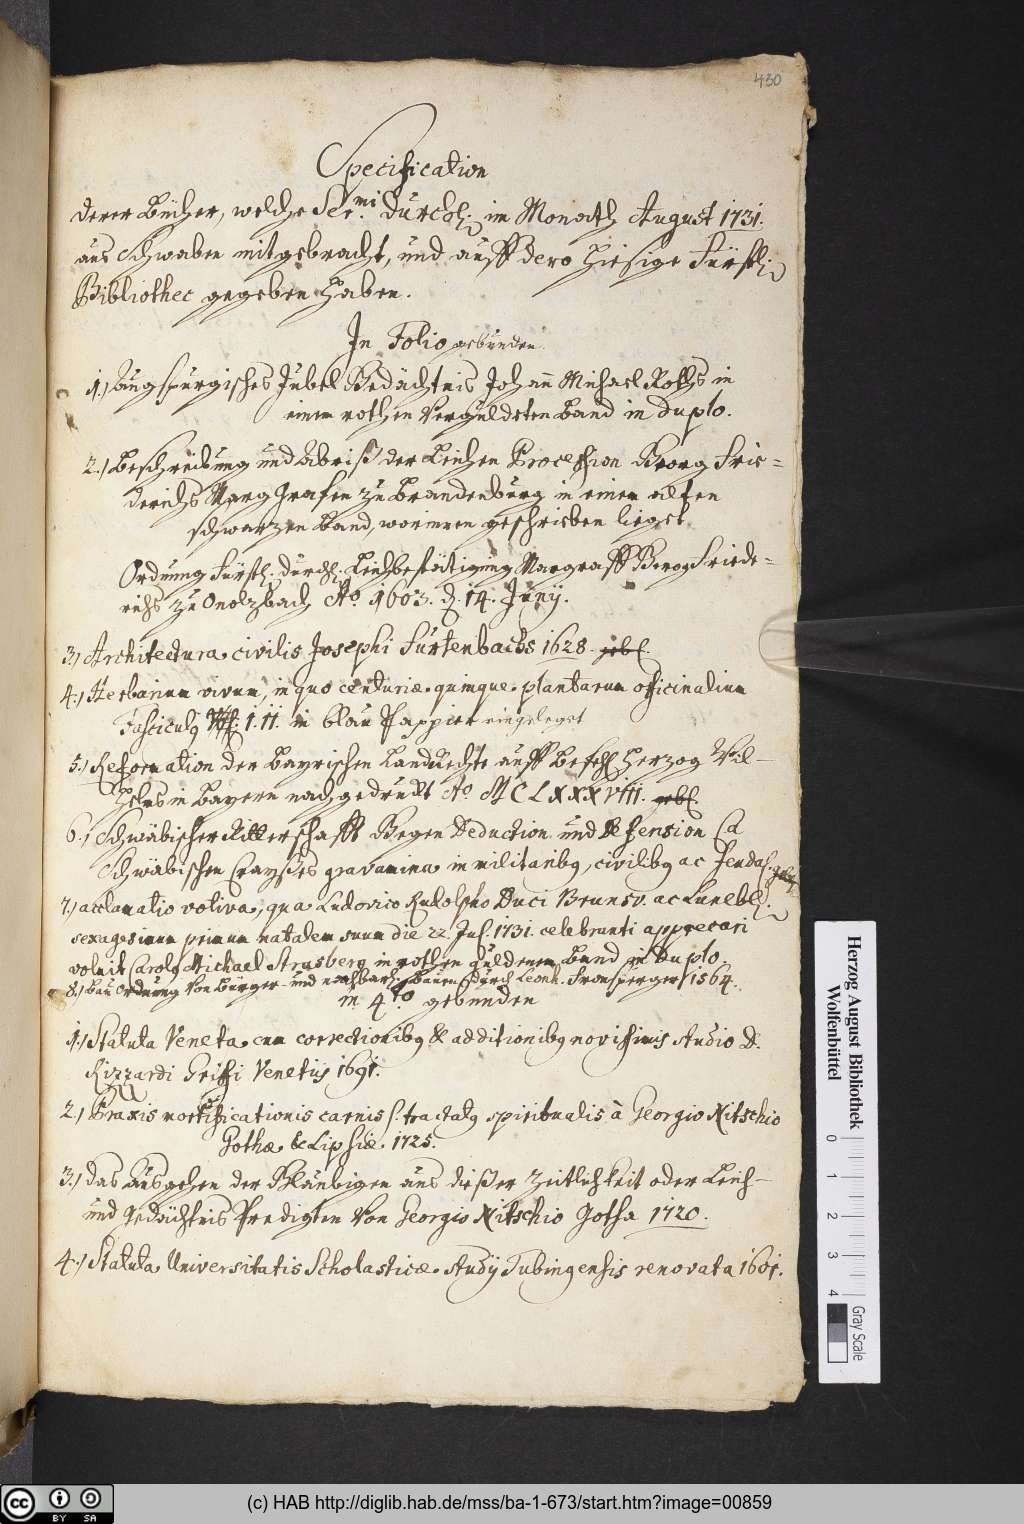 430
Specification
derer Bücher, welche Ser.mi Durchl. im Monath August 1731.
aus Schwaben mitgebracht, und auff dero hiesige Fürstl.
Bibliothec gegeben haben.
In Folio gebunden.
1.) Augspurgisches Jubel Gedächtnis Johann Michael Roths in
einem rothen verguldeten Band in duplo.
2.) Beschreibung und Abriß der Leichen Procession Georg Frie=
derichs Marg Grafen zu Brandenburg in einem alten
schwarzen Band, worinnen geschrieben lieget
Ordnung Fürstl. durchl. Leichbestätigung Margraff Georg Friede=
richs zu Onolzbach Ao. 1603. d. 14. Junij.
3.) Architectura civilis Josephi Furtenbachs 1628. gebl.
4.) Herbarium vivum, in quo centuriæ quinque plantarum officinalium
Fasciculg I. II. in blau Pappier eingeleget
5.) Reformation der Bayrischen Landrechte auff Befehl Herzog Wil-
helms in Bayern nachgedruckt Ao. MCLXXXVIII. gebl.
6.) Schwäbischer Ritterschafft Gegen Deduction und Defension
Schwäbischen Crayßes gravamina in militaribg, civilibg ac feudal.
7.) acclamatio votiva, qua Ludovico Rudolpho Duci Brunsv. ac Luneb.
sexagesimum primum natalem suum die 22. Jul. 1731. celebranti apprecari
voluit Carolg Michael Strasberg in rothen guldenen Band in Duplo.
8.) Bau Ordnung von Bürger- und nachbarl. Bauen durch Leonh. Fronsperger 1564.
in 4to gebunden
1.) Statuta Veneta cum correctionibg & additionibg novissimis studio D.
Rizzardi Griffi Venetiis 1691.
2.) Praxis mortificationis carnis s. tractatg spiritualis à Georgio Nitschio
Gothæ & Lipsiæ 1725.
3.) das Ausgehen der Gläubigen aus dießer Zeitlichkeit oder Leich-
und Gedächtnis Predigten von Georgio Nitschio Gotha 1720.
4.) Statuta Universitatis Scholasticæ studij Tubingensis renovata 1601.
Herzog August Bibliothek
Wolfenbüttel
0 1 2 3 4
Gray Scale
cc BY SA
(c) HAB http://diglib.hab.de/mss/ba-1-673/start.htm?image=00859